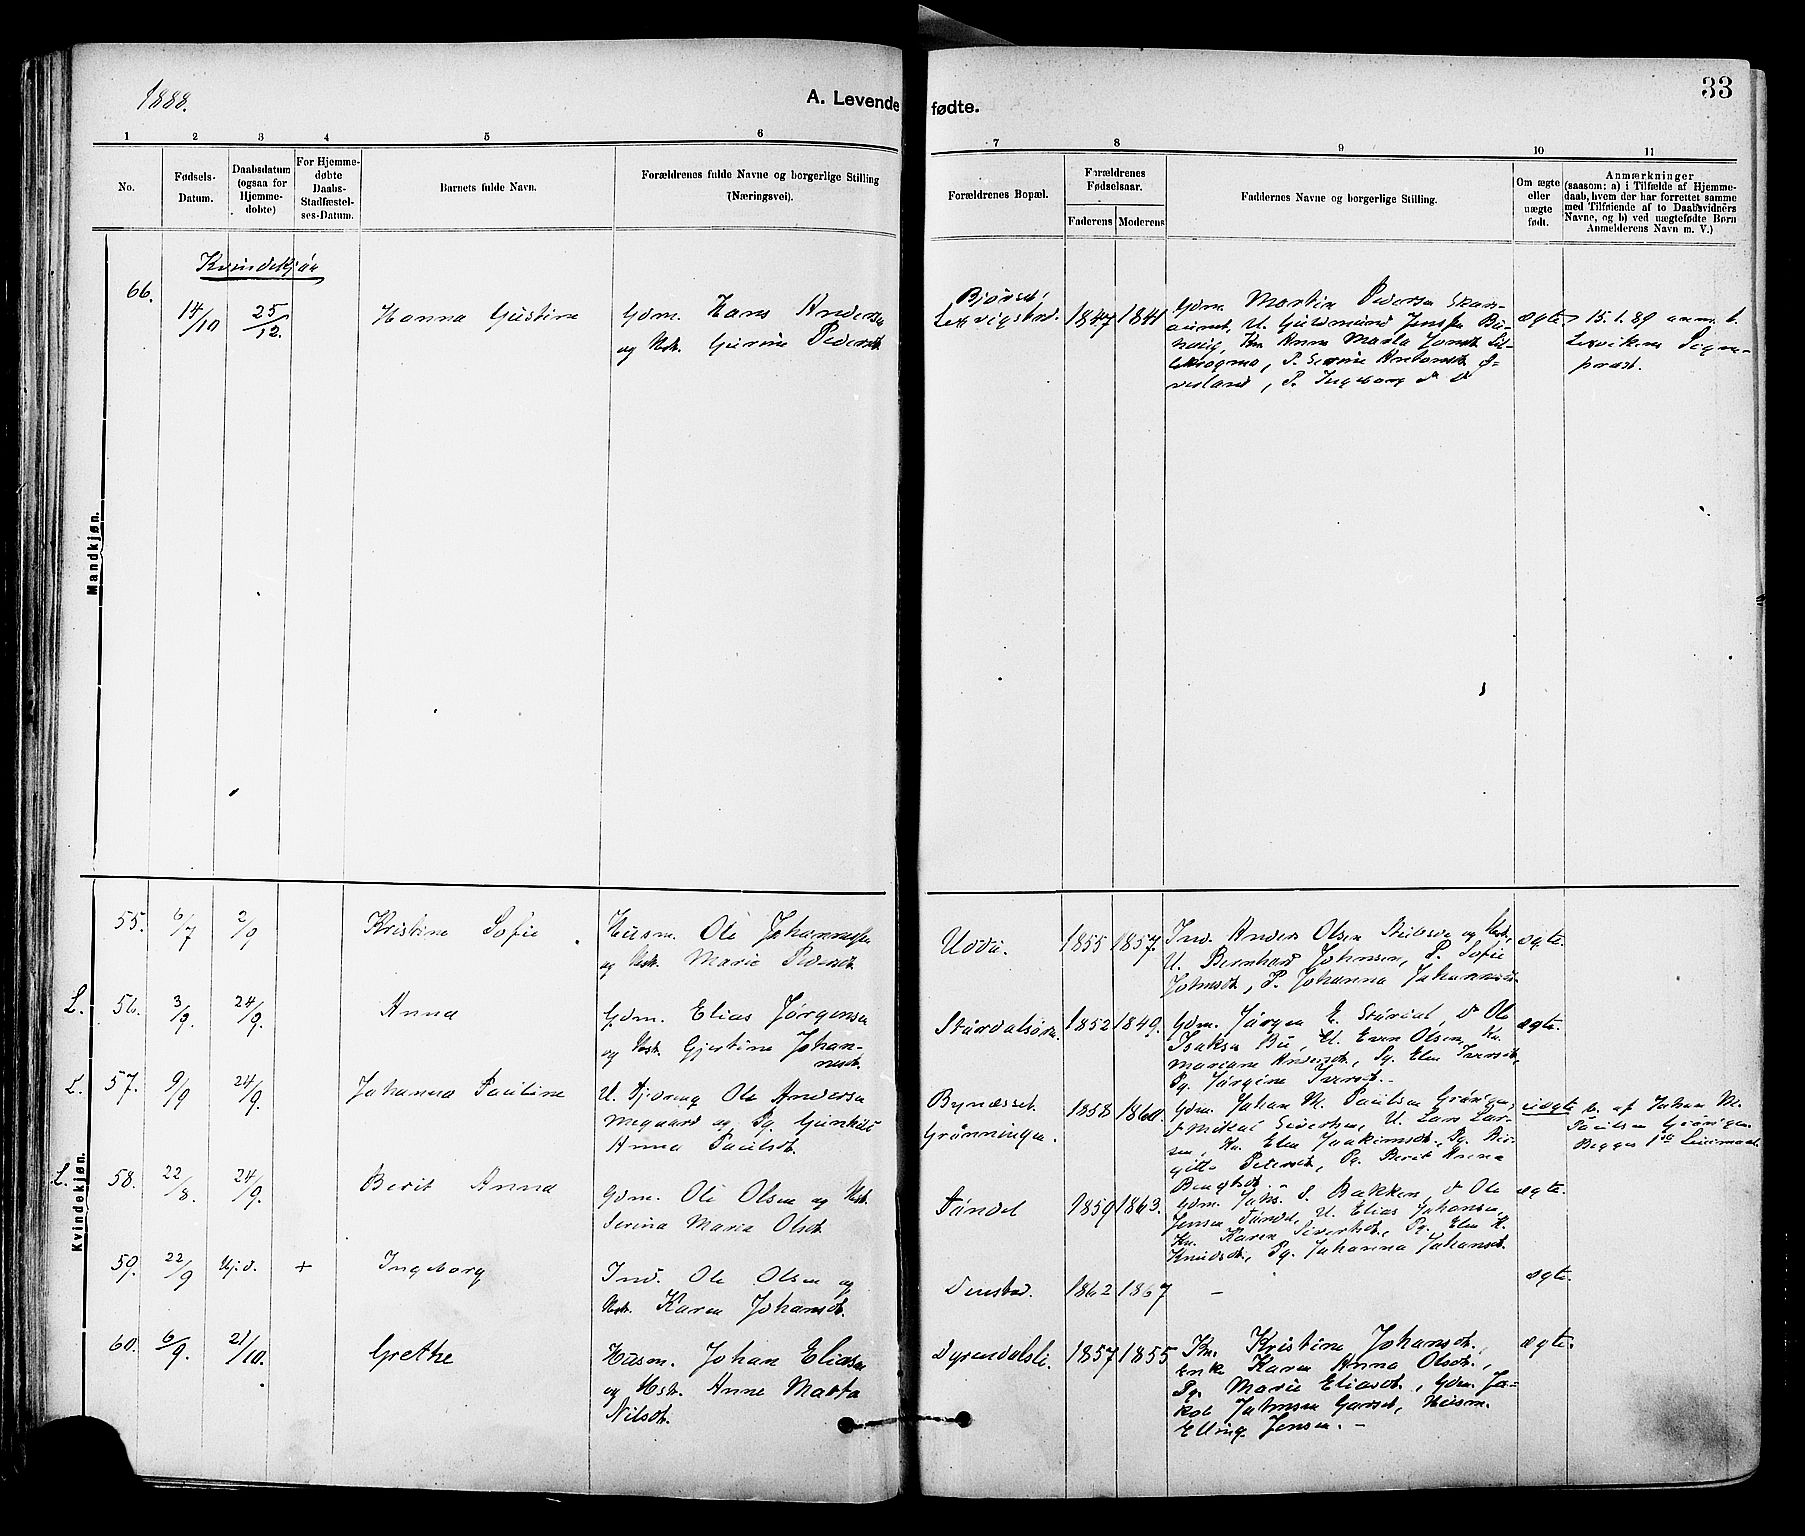 1888.
A. Levende fødte.
33
1 2 3 4 5 6 7 8 9 10 11
No.
Fødsels-
Datum.
Daabsdatum
(ogsaa for
Hjemme-
døbte)
For Hjemme-
døbte
Daabs-
Stadfæstel-
ses-Datum.
Barnets fulde Navn.
Forældrenes fulde Navne og borgerlige Stilling
(Næringsvei).
Forældrenes Bopæl.
Forældrenes
Fødselsaar.
Faderens Moderens
Faddernes Navne og borgerlige Stilling.
Om ægte
eller
uægte
født.
Anmærkninger
(saasom: a) i Tilfælde af Hjemme-
daab, hvem der har forrettet samme
med Tilføiende af to Daabsvidners
Navne, og b) ved uægtefødte Børn
Anmelderens Navn m. V.)
Mandkjøn.
Kvindekjøn
66.
14/10 25/12. Hanna Gustine
Gdm. Hans Andersen
og Hstr. Gurine Pedersdt.
1847 1841
Gdm. Martin Pedersen
U. Guldmund
Kn Anna Marta
P. Ingeborg
ægte
15.1.89 anm. t.
Leksvikens Sogne-
præst.
Kvindekjøn.
55. 6/7 2/9 Kristine Sofie
Husm. Ole Johannessen
og Hstr. Marie Pedersdt.
Uddu. 1855 1857.
Ind. Anders Olsen
U. Bernhard Johnsen, P. Sofie
Johnsdt, P. Johanna Johannesdt.
ægte.
L. 56. 3/9. 24/9. Anna
Gdm. Elias Jørgensen
og Hstr. Gjertine Johan-
nesdt.
1852 1849.
Gdm. Jørgen E. Stürdal, do Ole
Isaksen Bü, U. Even Olsen, Kn.
Mariane Andersdt. Pg. Elen Iversdt,
Pg. Jørgine Iversdt.
ægte.
L. 57. 9/9 24/9. Johanna Pauline
Ole Andersen
og Pg. Gunhild
Anna Paulsdt.
Bynæsset
Grønningen.
1858 1860.
Gdm. Johan M. Paulsen Grøngen,
Sivertsen, U. Lars Lar-
sen, Kn. Elen Joakimsdt., Pg. Bir-
gitte Petersdt., Pg. Berit Anna
Bengtsdt.
uægte
b. af Johan M.
Paulsen Grøngen
Begges 1ste Leiermaal
L. 58. 22/8. 24/9. Berit Anna
Gdm. Ole Olsen og Hstr.
Serina Maria Olsdt.
1859 1863.
Gdm. Johs. S. Bakken, do Ole
Jensen, U. Elias Johansen,
Kn. Karen Sivertsdt., Pg. Elen K.
Knudsdt, Pg. Johanna Johansdt.
ægte.
59. 22/9 Hj.d. + Ingeborg
Ind. Ole Olsen og
Hstr. Karen Johansdt.
1862 1867 –
ægte.
60. 6/9. 21/10. Grethe
Husm. Johan Eliasen
og Hstr. Anne Marta
Nilsdt.
Dyrendalsli. 1857 1855
Kn. Kristine Johansdt.,
Enke Karen Anna Olsdt.,
Pg. Marie Eliasdt., Gdm. Ja-
kob Johnsen, Husm.
Elling Jensen. –
ægte.